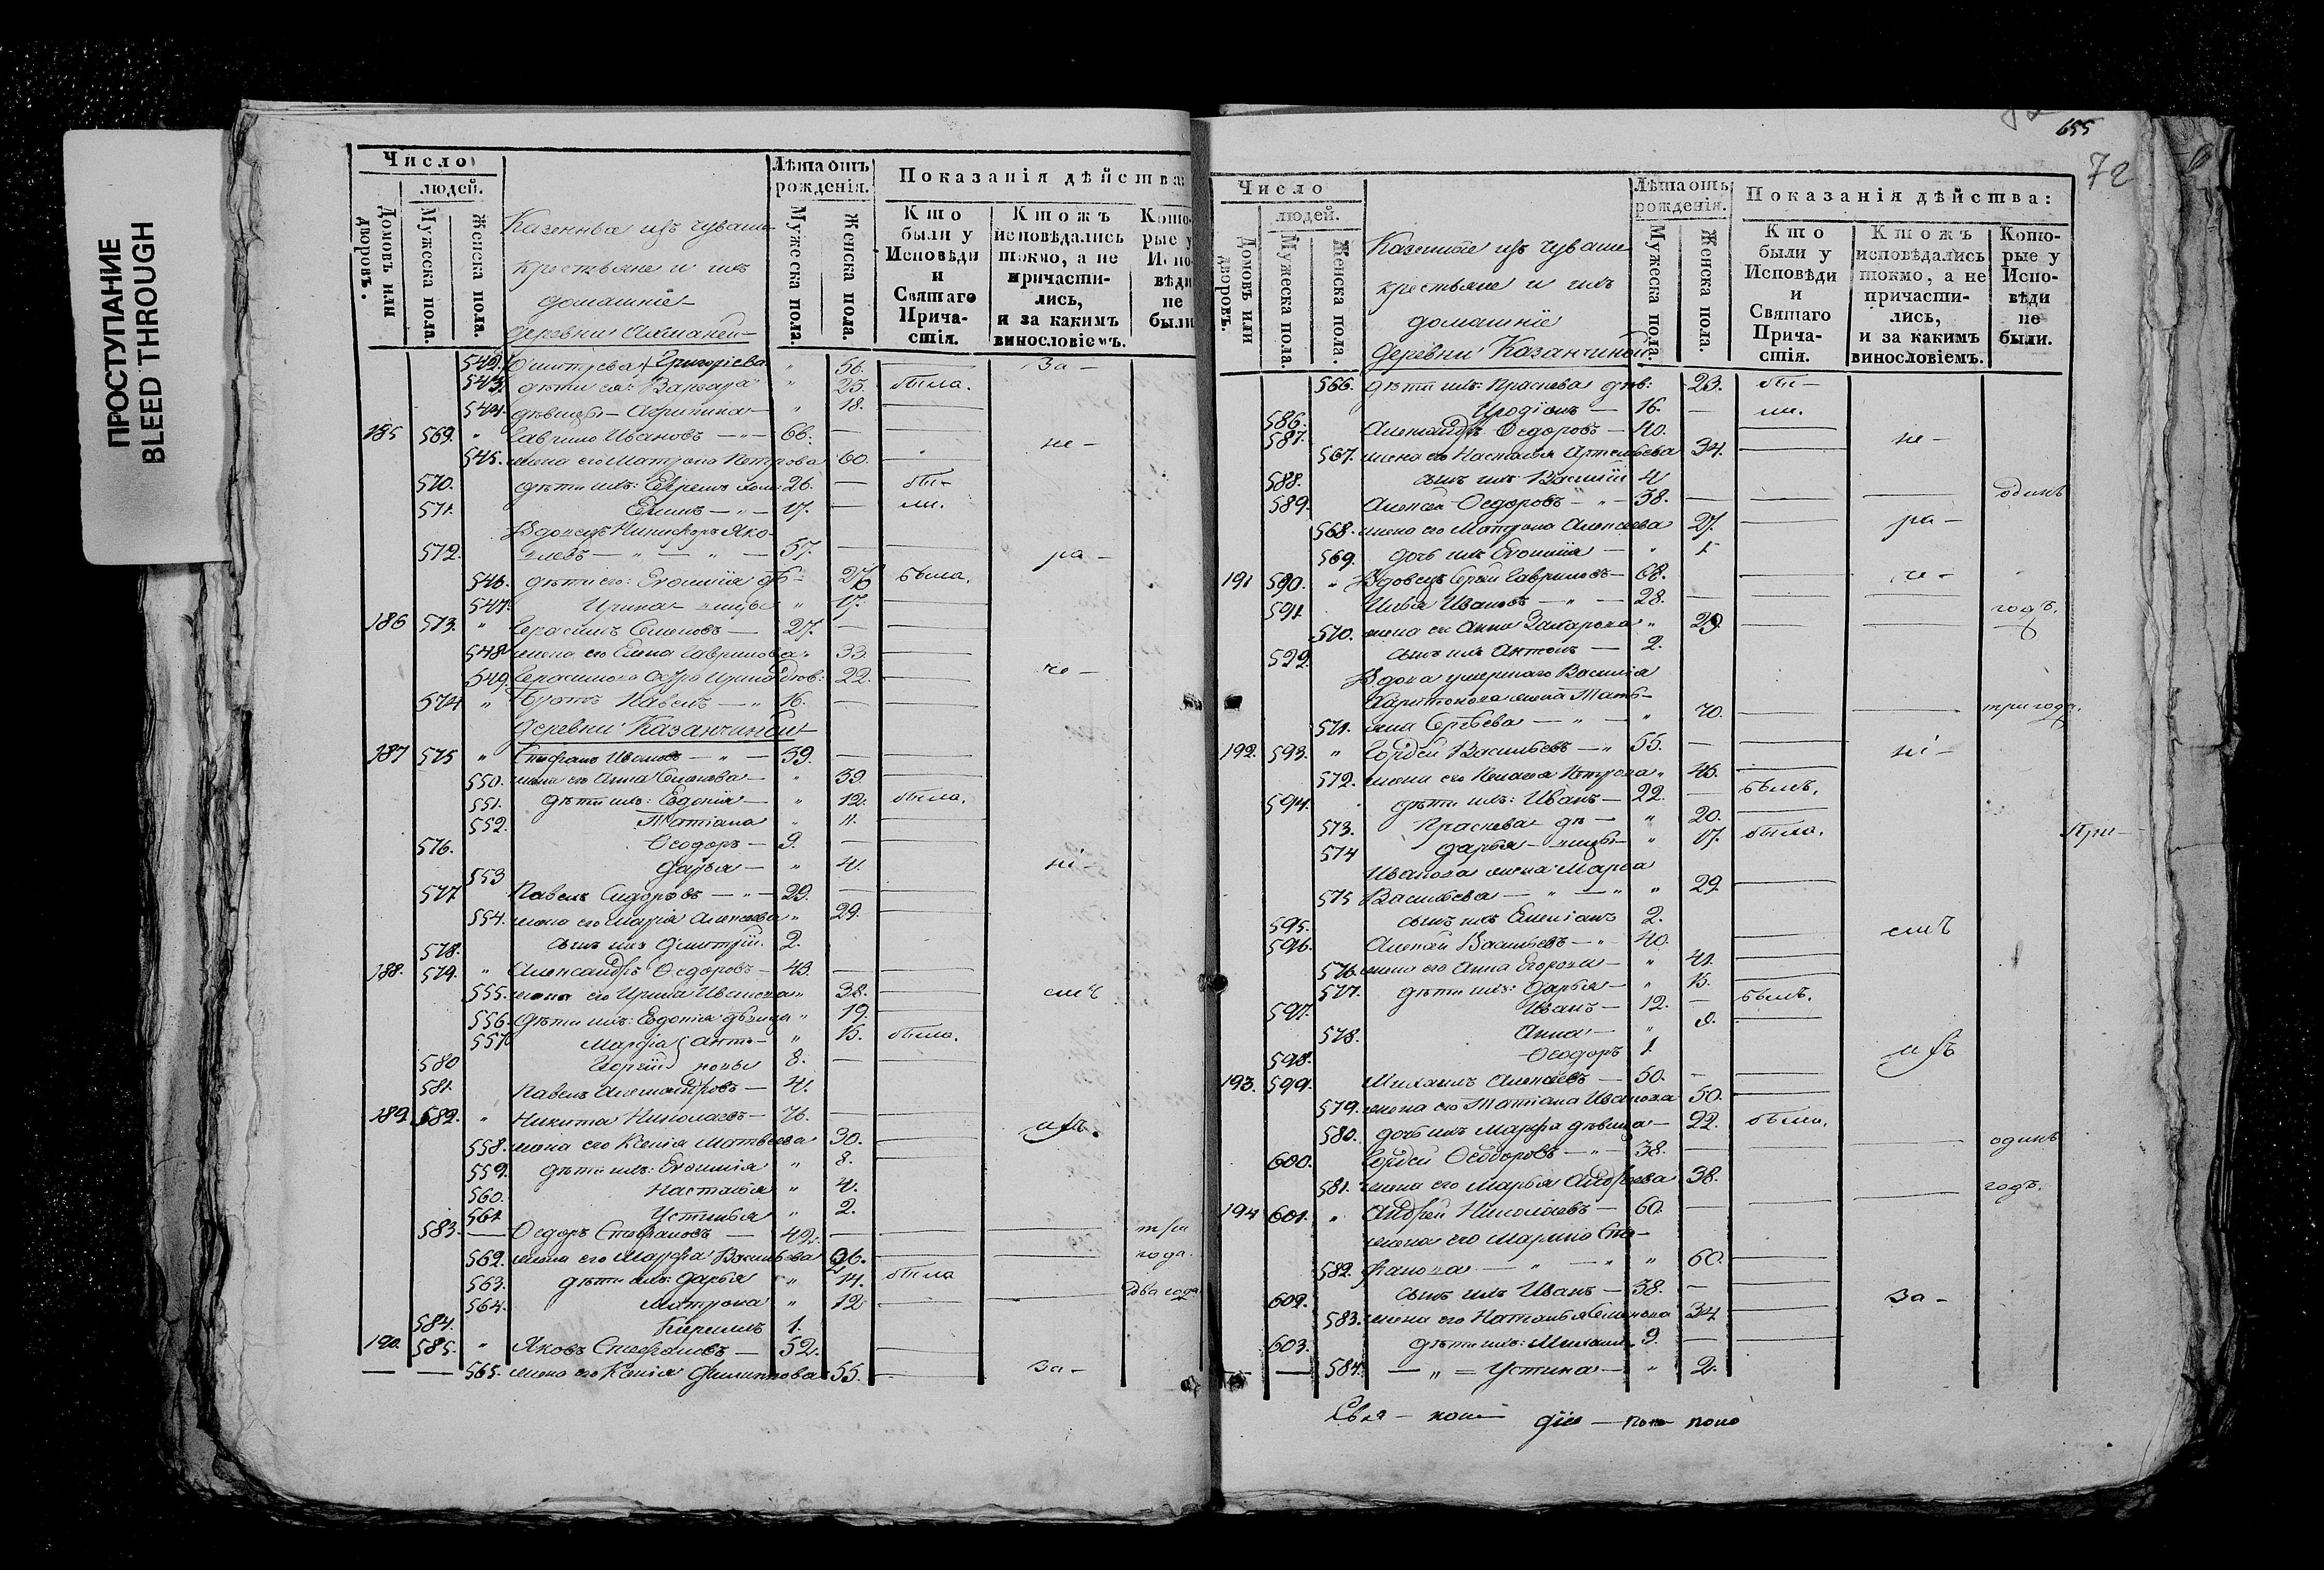 ПРОСТУПАНИЕ
BLEED THROUGH
Число
людей.
Домовъ или дворовъ.
Мужеска пола.
Женска пола.
Казенныя изъ чувашъ
крестьяне и ихъ
домашніе
Деревни
Лѣта отъ рожденія.
Мужеска пола.
Женска пола.
Показанія дѣйства:
Кто были у Исповѣди и Святаго Причастія.
Ктожъ исповѣдались токмо, а не причастились, и за какимъ винословіемъ.
Которые у Исповѣди не были
542. Григорьева 56. За-
543. дѣти ея: Варвара 25. была.
544. 18.
185 569. Гаврило Ивановъ 66. не-
545. жена его Матрона Петрова 60.
570. дѣти ихъ: 26. бы-
571. 17. ли.
Вдовецъ Никифоръ Яко-
572. влевъ 57. ра-
546. дѣти его: Евѳимія дѣ- была.
547. Ирина вицы 17.
186 573. Герасимъ Семеновъ 27.
548 жена его Елена Гаврилова 33.
549. Герасимова сестра Ирина 22. че-
574 братъ Павелъ 16.
Деревни Казанчиной
187 575 Стефанъ Ивановъ 39.
550. жена его Анна Семенова 39.
551. дѣти ихъ: Евдокія 12. была.
552. Татіана 11.
576. Ѳеодоръ 9.
553 Дарья 4. ні-
577 Павелъ Сидоровъ 29.
554. жена его Марія Алексѣева 29.
578. сынъ ихъ Дмитрій. 2.
188. 579. Александръ Ѳедоровъ 43.
555. жена его Ирина Иванова 38.
556. дѣти ихъ: Евдокія дѣвица 19.
557 Марфа 15. была.
580 8.
581. Павелъ Александровъ 4.
189. 582. Никита Николаевъ
558. жена его Ксенія Матвѣева 30.
559. дѣти ихъ: Евѳимія 8.
560. Настасья 4.
561 Устинья 2.
583. Ѳедоръ Стефановъ 42. три
562. жена его Марфа Васильева года.
563. дѣти ихъ: Дарья 14. была
564. Матрона 12 два года
584. Кирилъ 1.
190. 585. Яковъ Стефановъ 52.
565. жена его Ксенія Филиппова 55. за-
655
72
Число
людей.
Домовъ или дворовъ.
Мужеска пола.
Женска пола.
Казенные изъ чувашъ
крестьяне и ихъ
домашніе
Деревни Казанчиной
Лѣта отъ рожденія.
Мужеска пола.
Женска пола.
Показанія дѣйства:
Кто были у Исповѣди и Святаго Причастія.
Ктожъ исповѣдались токмо, а не причастились, и за какимъ винословіемъ.
Которые у Исповѣди не были.
566. дѣти ихъ: Прасковья дѣв: 23. бы-
586. Иродіонъ 16. ли.
587. Александръ Ѳедоровъ 40. не-
567. жена его Настасья Артемьева 34.
588. сынъ ихъ Василій 4
589. Алексѣй Ѳедоровъ 38. одинъ
568. жена его Матрона Алексѣева 27. ра-
569. дочь ихъ Евѳимія 1
191 590. Вдовецъ Сергѣй Гавриловъ 68. че-
591 Илья Ивановъ 28. годъ.
570. жена его Анна Захарова 29.
529. сынъ ихъ Антонъ 2.
Вдова умершаго Василія
Харитонова жена Тать-
571. яна Сергѣева 70. три года.
192. 593. Гордей Васильевъ 55. ні-
572. жена его Пелагея Петрова 46.
594. дѣти ихъ: Иванъ 22. былъ.
573. Прасковья дѣ- 20.
574 Дарья вицы 17. была. При-
Иванова жена Марѳа
575 Васильева 29.
595. сынъ ихъ 2.
596. Алексѣй Васильевъ 40. емъ
576. жена его Анна Егорова 41.
577. дѣти ихъ: Дарья 15.
597. Иванъ 12. былъ.
578. Анна
598. Ѳеодоръ 1.
193. 599. Михаилъ Алексѣевъ 50.
579. жена его Татіана Иванова 50.
580. дочь ихъ Марфа дѣвица 22. была.
600. Гордей Ѳеодоровъ 38. одинъ
581. жена его Марья Андреева 38. годъ.
194 601. Андрей Николаевъ 60.
жена его Марина Сте-
582. фанова 60.
602. сынъ ихъ Иванъ 38. за-
583. жена его Наталья Семенова 34
603. дѣти ихъ: Михаилъ 9.
584. Устина 2.